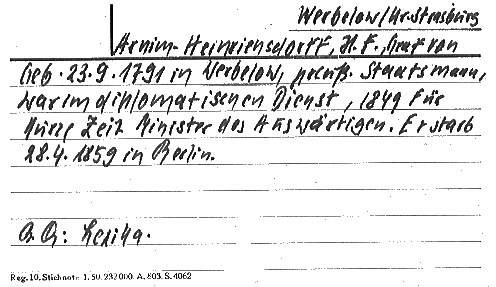 Werbelow/Kr. Strasburg
Arnim-Heinrichsdorff, H. F., Graf von
Geb. 23.9.1791 in Werbelow, preuß. Staatsmann,
war im diplomatischen Dienst, 1849 für
kurze Zeit Minister des Auswärtigen. Er starb
28.4.1859 in Berlin.
B. Q.: Lexika.
Reg. 10. Stichnote 1. 50. 232000. A. 803. S. 4062